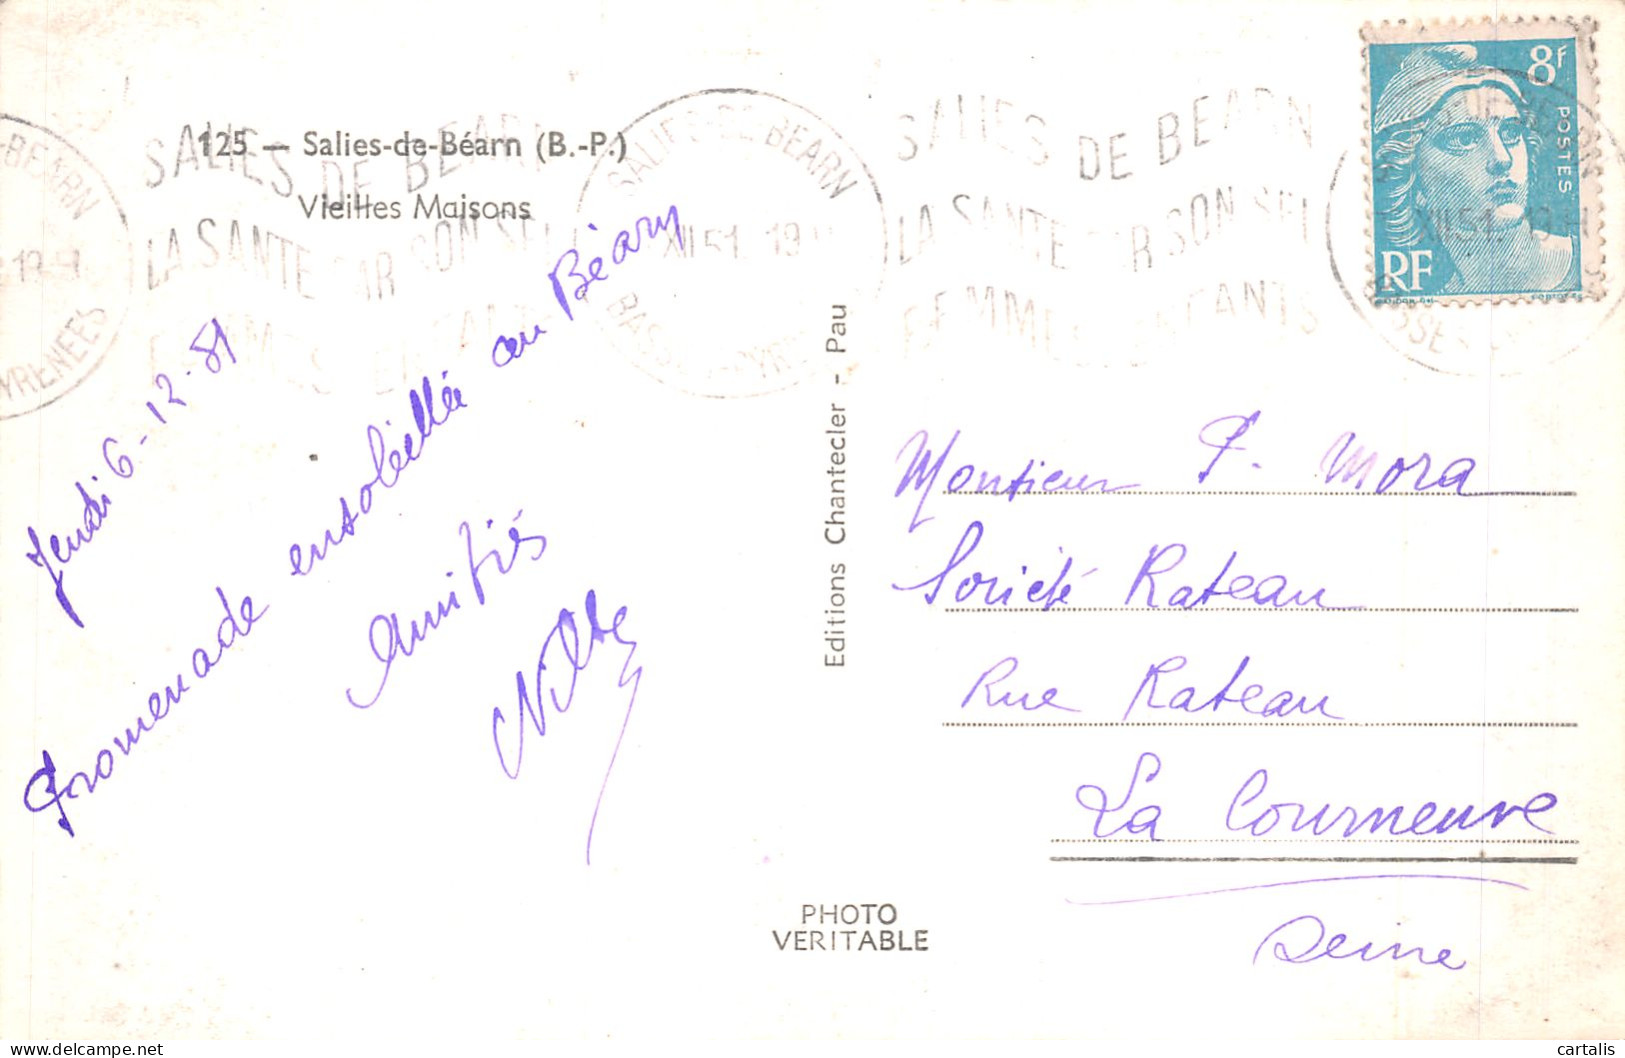 125 — Salies-de-Béarn (B.-P.)
Vieilles Maisons
SALIES DE BÉARN
LA SANTE PAR SON SEL
FEMMES ENFANTS
SALIES-DE-BEARN
XII 51
BASSES-PYRENEES
SALIES DE BÉARN
LA SANTE PAR SON SEL
FEMMES ENFANTS
8F
POSTES
RF
XII 51
Jeudi 6-12-51
Promenade ensoleillée au Béarn
Amitiés
Editions Chantecler - Pau
Monsieur P. Mora
Société Rateau
Rue Rateau
La Courneuve
Seine
PHOTO
VERITABLE
cartalis